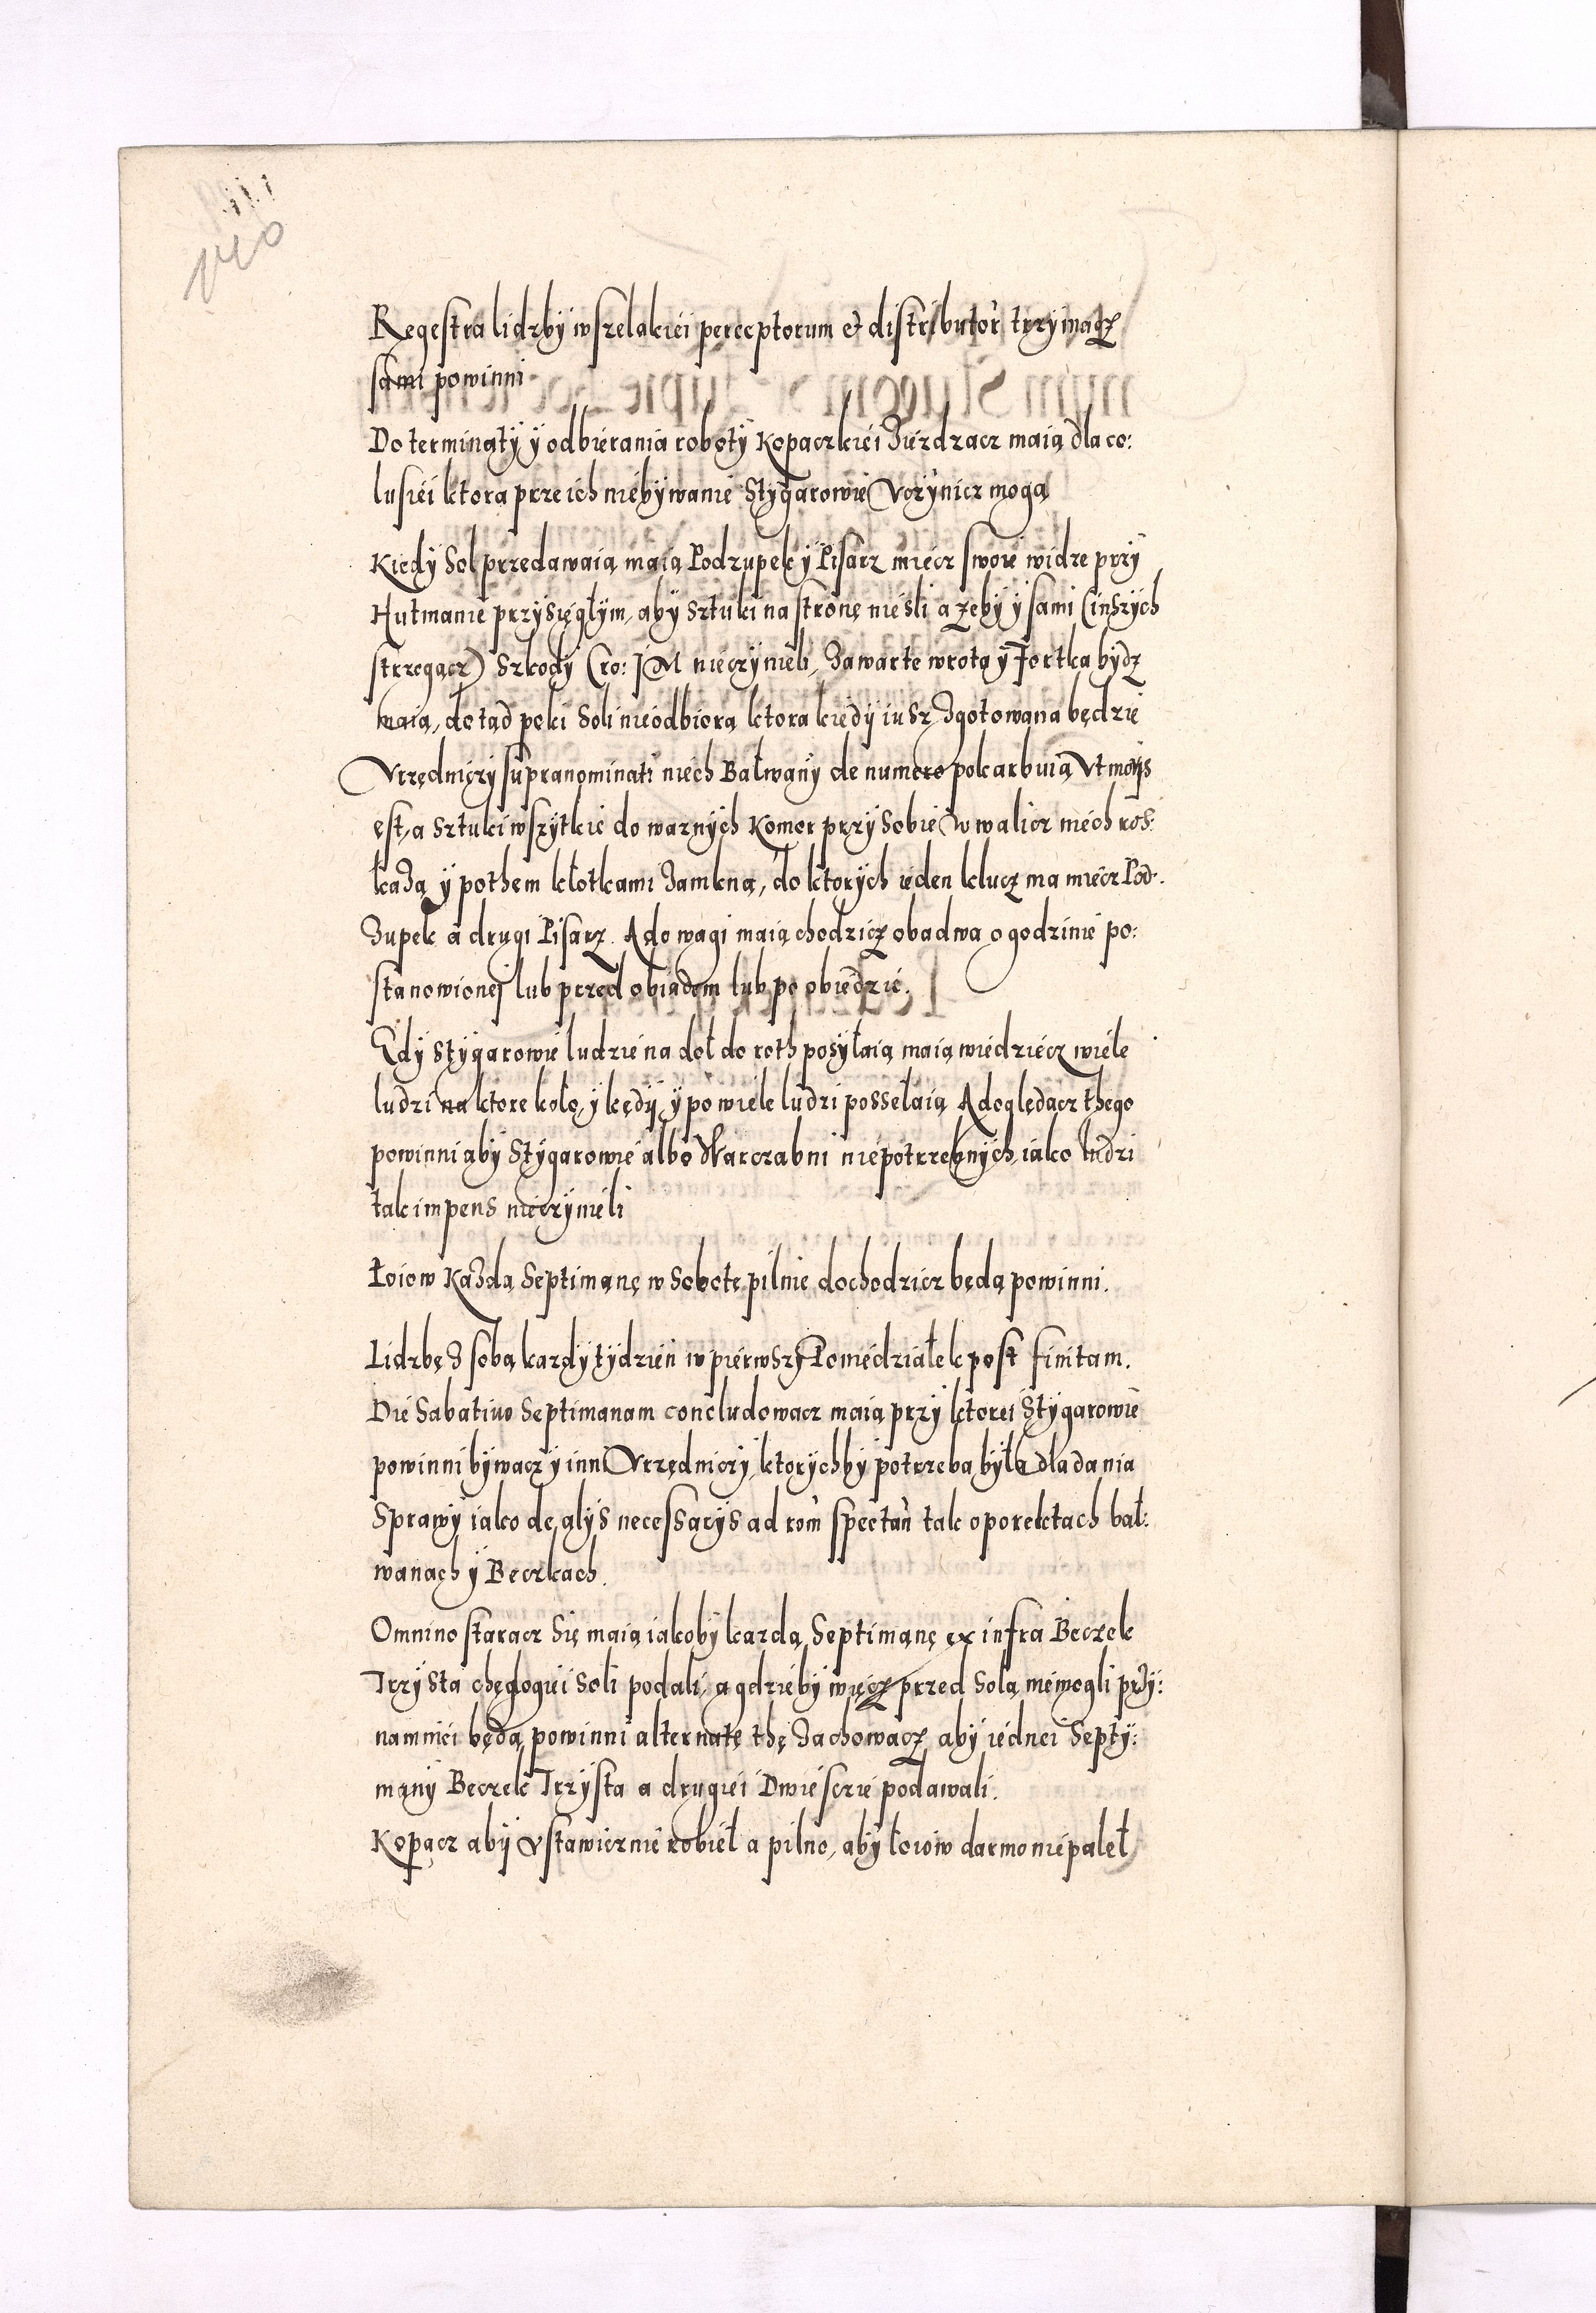 140
Regestra lidzby wszelakiéi perceptorum et distributor̃ trzymacz
sami powinni
Do terminaty y odbiérania roboty Kopaczkiéi Ziezdzacz maią dla co:
lusiéi ktora prze ich niébywanié Stygarowie Vczynicz mogą
Kiedy Sol przedawaią maią Podzupek y Pisarz miécz swoie widze przy
Hutmanié przysięgłym, aby sztuki na stronę niészli a zeby y sami (inszych
strzegącz) Szkody Kro: JM nieczynieli, Zawarte wrota y Fortka bydz
maią, dotąd poki Soli niéodbiorą ktora kiedy iusz Zgotowana będzie
Vrzędniczy supranominati niech Bałwany de numero pokarbuią Vt moris
est, a sztuki wszytkie do waznych Komor przy sobie Wwalicz niéch ros:
każą y pothem kłotkami Zamkną, do ktorych ieden klucz ma miécz Pod:
Zupek a drugi Pisarz. A do wagi maią chodzicz obadwa o godzinie po:
stanowionej lub przed obiadem lub po obiedzié.
Gdy Stygarowié ludzié na doł do roth posyłaią maią wiédziécz wiéle
ludzi na ktore koło, y kędy, y po wiéle ludzi posselaią A doględacz thego
powinni aby Stygarowié albo Warczabni niépotrzebnych, iako ludzi
tak impens nieczyniéli
Łoiow Każdą Septimanę w Sobotę pilnie dochodzicz będą powinni.
Lidzbę z sobą kazdy tydzień w piérwszy Poniédziałek post finitam.
Dié Sabativo Septimanam concludowacz maią przy ktorei Stygarowié
powinni bywacz y inni Vrzędniczy, ktorychby potrzeba była dla dania
Sprawy iako de alys necessarys ad rom̃ spectan̄ tak o porektach bał:
wanach y Beczkach.
Omnino staracz się maią iakoby kazdą Septimanę ex infra Beczek
Trzysta chędogiéi soli podali, a gdziéby więcz przed Solą niémogli przy:
namniéi będą powinni alternatę thę Zachowacz aby iédnei Septy:
many Beczek Trzysta a drugiéi Dwiéscié podawali.
Kopacz aby Vstawicznié robiéł a pilno, aby łoiow darmo niépaleł